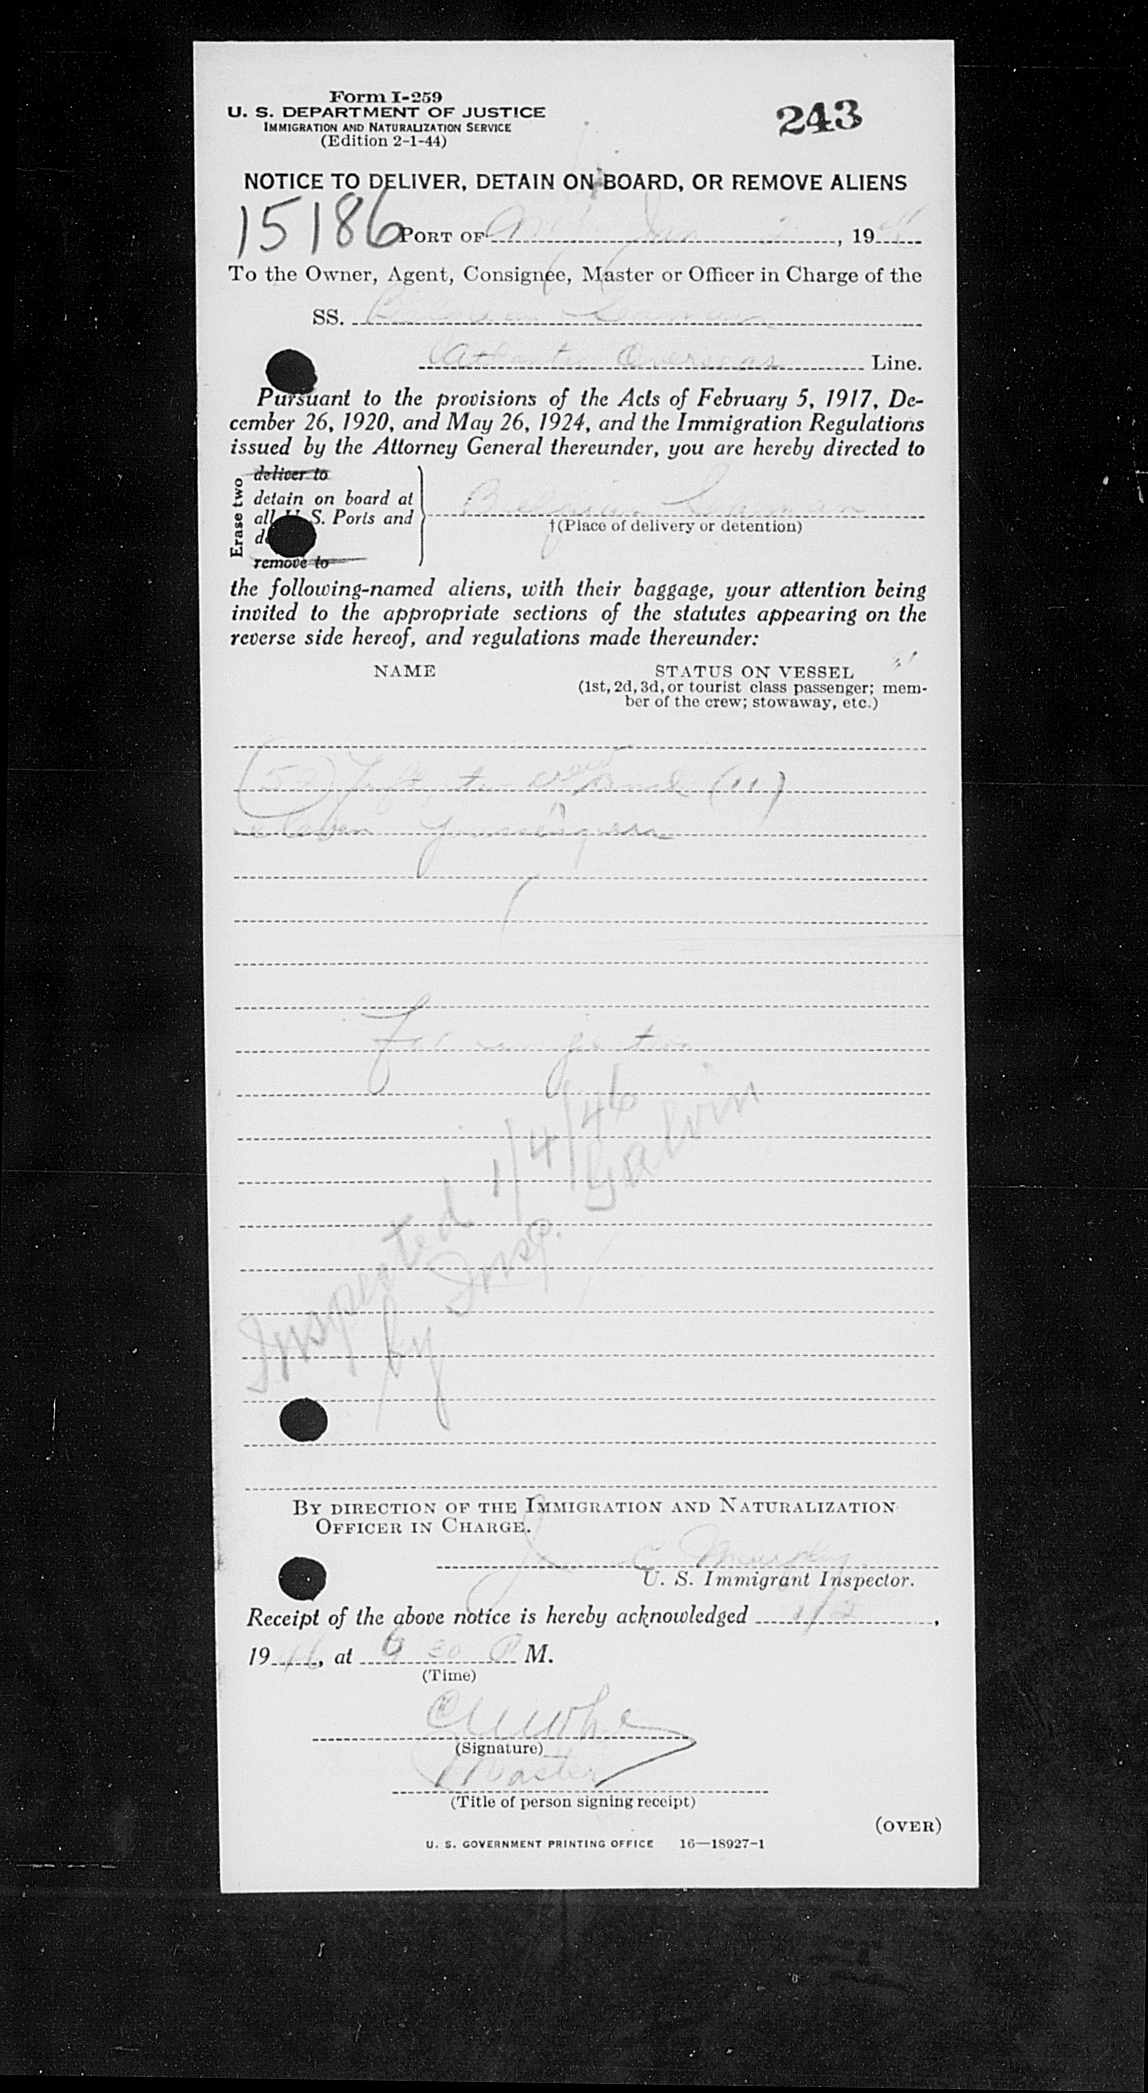 Form I-259
U. S. DEPARTMENT OF JUSTICE
IMMIGRATION AND NATURALIZATION SERVICE
(Edition 2-1-44)
243
NOTICE TO DELIVER, DETAIN ON BOARD, OR REMOVE ALIENS
15186
PORT OF Jan 2, 19
To the Owner, Agent, Consignee, Master or Officer in Charge of the
SS. Belgian Seaman
Atlantic Overseas Line.
Pursuant to the provisions of the Acts of February 5, 1917, De-
cember 26, 1920, and May 26, 1924, and the Immigration Regulations
issued by the Attorney General thereunder, you are hereby directed to
Erase two
deliver to
detain on board at
all U.S. Ports and
remove to
Belgian Seaman
†(Place of delivery or detention)
the following-named aliens, with their baggage, your attention being
invited to the appropriate sections of the statutes appearing on the
reverse side hereof, and regulations made thereunder:
NAME
STATUS ON VESSEL
(1st, 2d, 3d, or tourist class passenger; mem-
ber of the crew; stowaway, etc.)
(52) Fifty two crew and (11)
eleven passengers
For inspection
Inspected 1/4/46
by Insp. Galvin
BY DIRECTION OF THE IMMIGRATION AND NATURALIZATION
OFFICER IN CHARGE.
C Murphy
U. S. Immigrant Inspector.
Receipt of the above notice is hereby acknowledged 1/2,
1946, at 9 30 P M.
(Time)
(Signature)
Master
(Title of person signing receipt)
(OVER)
U. S. GOVERNMENT PRINTING OFFICE 16—18927-1